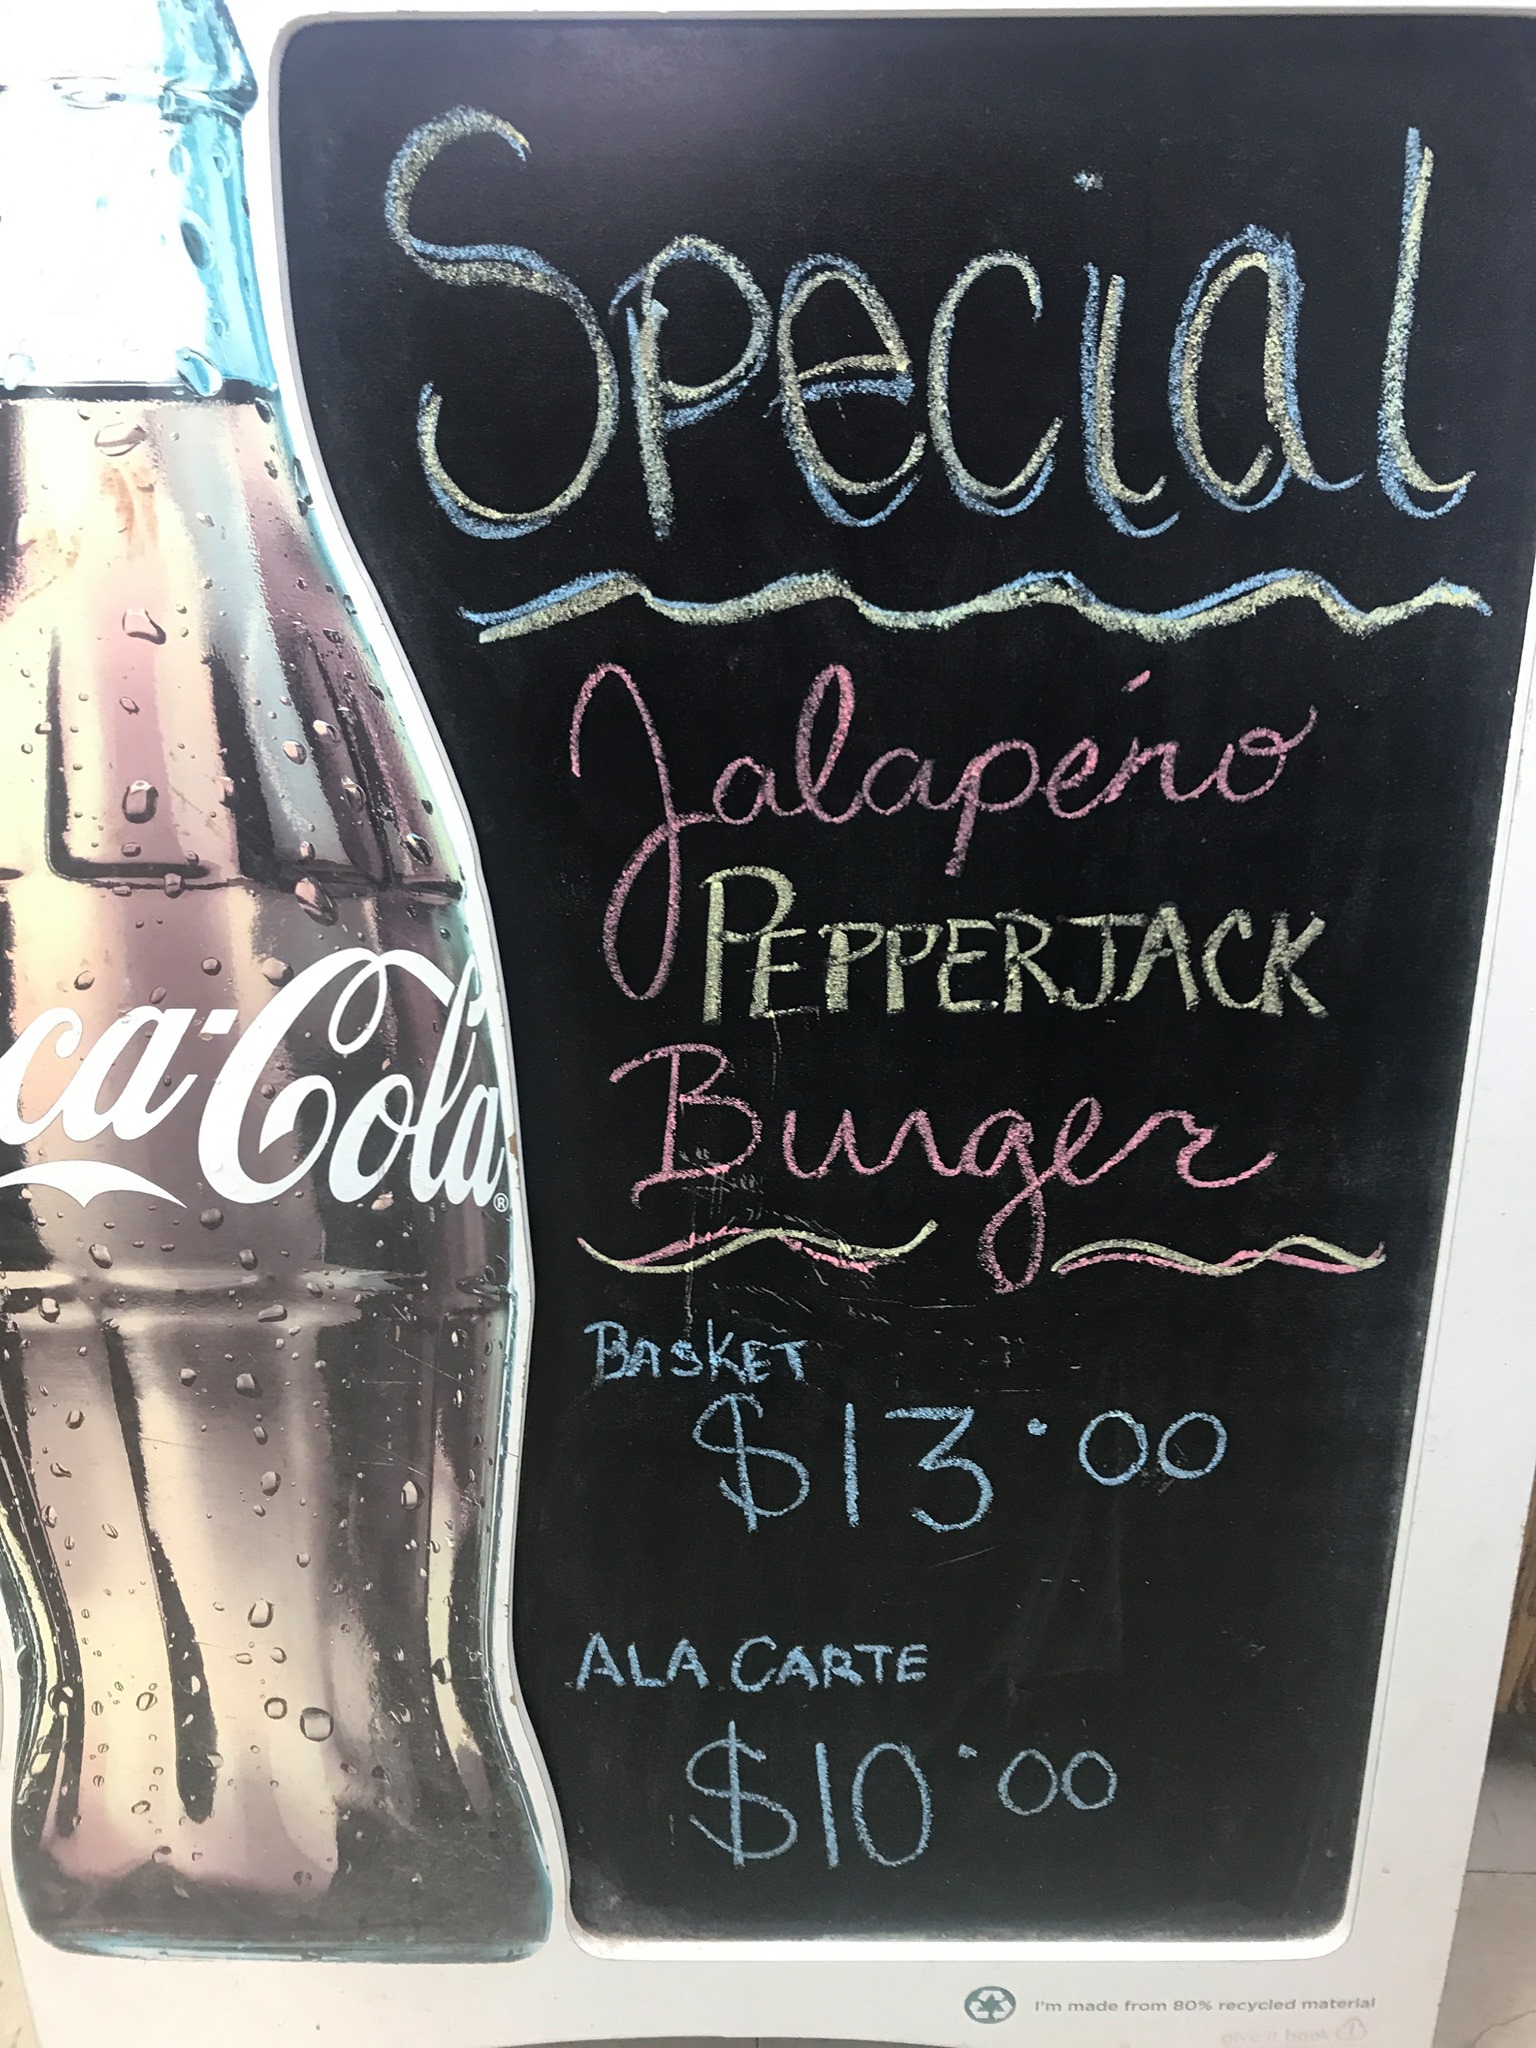 Special
Jalapéno
PEPPERJACK
Burger
BASKET
$13.00
ALA CARTE
$10.00
ca-Cola®
I'm made from 80% recycled material
give it back